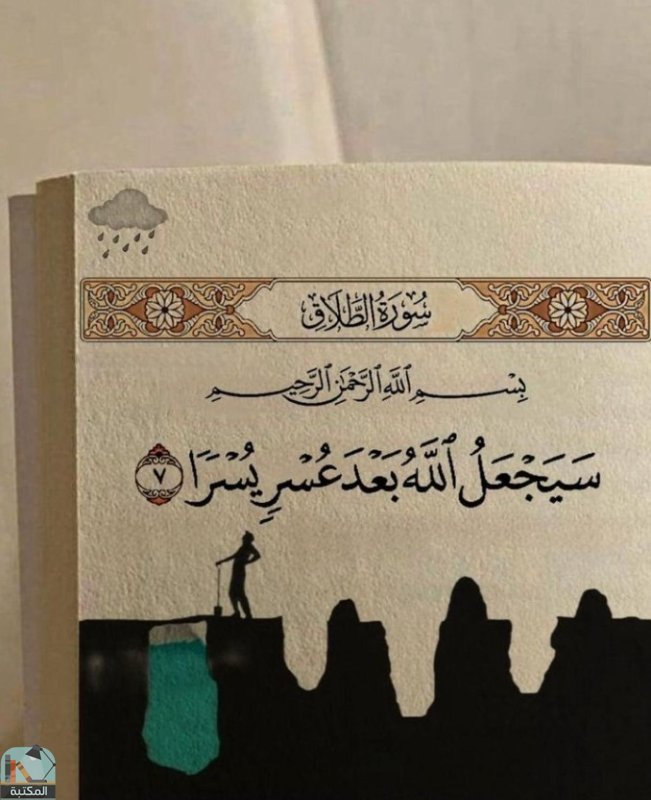 سُورَةُ الطَّلَاقِ
بِسْمِ ٱللَّهِ ٱلرَّحْمَٰنِ ٱلرَّحِيمِ
سَيَجْعَلُ ٱللَّهُ بَعْدَ عُسْرٍ يُسْرًا ٧
المكتبة